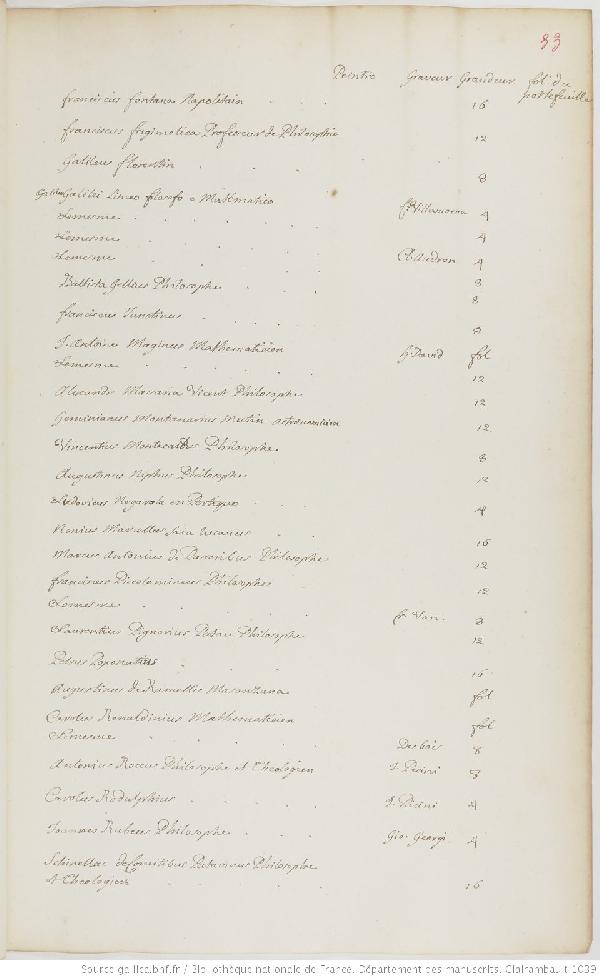 83
Peintre Graveur Grandeur fol. du
portefeuille
franciscus fontana Napolitain 16
franciscus frigimelica Professeur de Philosophie 12
Galileus florentin 8
Galileo Galilei Linceo filosofo e Mathematico f. Villamoena 4
Lemesme 4
Lemesme Cl. Audran 4
Battista Gellius Philosophe 8
8
franciscus Junctinus 8
J. Antoine Maginus Mathematicien h. David fol
Lemesme 12
Alexander Massaria Vicent Philosophe 12
Geminianus Montanarius Mutin astronomicien 12
Vincentius Montecald Philosophe 8
Augustinus Niphus Philosophe 12
Ludovicus Nogarola en Portique 4
Nonius Marcellus 16
Marcus Antonius de Passeribus Philosophe 12
franciscus Piccolomineus Philosophe 12
Lemesme f. Van. 8
Laurentius Pignorius Patav Philosophe 12
Petrus Pomponatius 16
Augustinus de Ramellis Masanzana fol
Carolus Renaldinius Mathematicien fol
Lemesme Desbois 8
Antonius Roccus Philosophe et Theologien J. Picini 8
Carolus Rodulphius J. Picini 4
Joannes Rubeus Philosophe Gio. Georgi 4
Schinellae de Comitibus Patavinus Philosophe
et Theologien 16
Source gallica.bnf.fr / Bibliothèque nationale de France. Département des manuscrits. Clairambault 1039